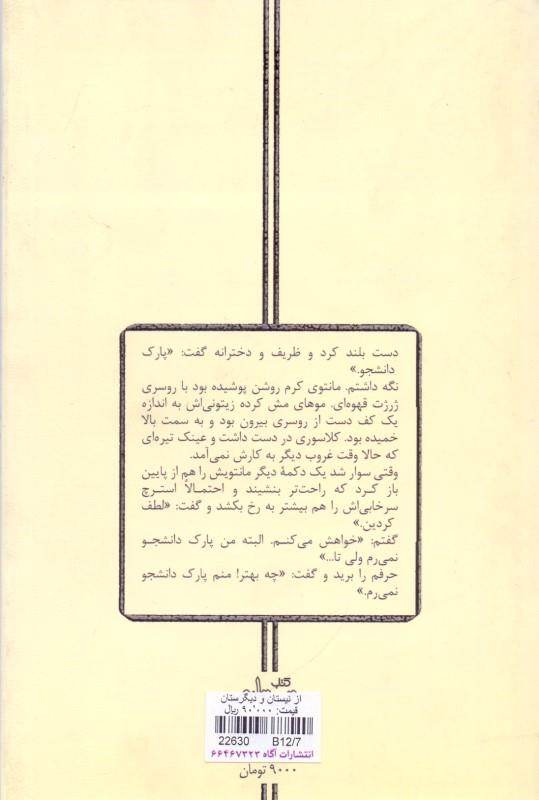 دست بلند کرد و ظریف و دخترانه گفت: «پارک
دانشجو.»
نگه داشتم. مانتوی کرم روشن پوشیده بود با روسری
ژرژت قهوه‌ای. موهای مش کرده زیتونی‌اش به اندازه
یک کف دست از روسری بیرون بود و به سمت بالا
خمیده بود. کلاسوری در دست داشت و عینک تیره‌ای
که حالا وقت غروب دیگر به کارش نمی‌آمد.
وقتی سوار شد یک دکمهٔ دیگر مانتویش را هم از پایین
باز کرد که راحت‌تر بنشیند و احتمالاً استرچ
سرخابی‌اش را هم بیشتر به رخ بکشد و گفت: «لطف
کردین.»
گفتم: «خواهش می‌کنم. البته من پارک دانشجو
نمی‌رم ولی تا...»
حرفم را برید و گفت: «چه بهتر! منم پارک دانشجو
نمی‌رم.»
کتاب
از نیستان و دیگرستان
قیمت: ۹۰٬۰۰۰ ریال
22630 B12/7
انتشارات آگاه ۶۶۴۶۷۳۲۳
۹۰۰۰ تومان